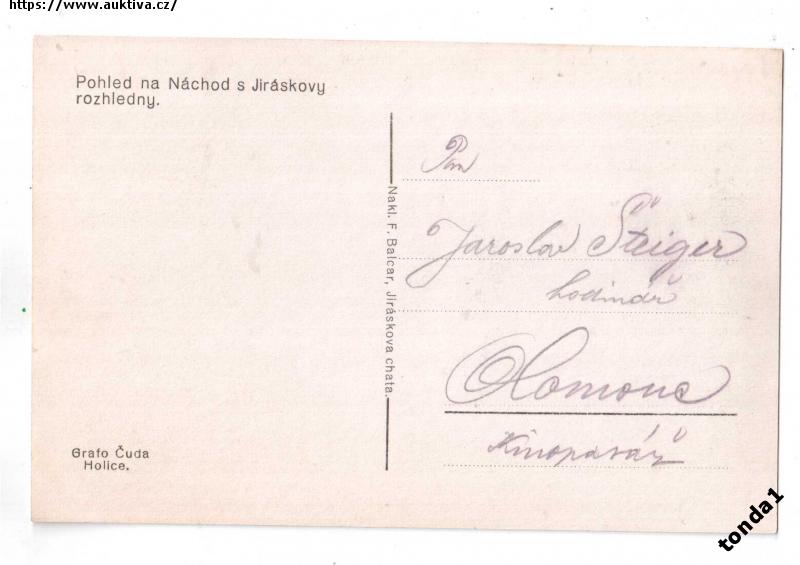 https://www.auktiva.cz/
Pohled na Náchod s Jiráskovy
rozhledny.
Nakl. F. Balcar, Jiráskova chata.
Pan
Jaroslav Šteiger
hodinář
Olomouc
Kinopasáž
Grafo Čuda
Holice.
tonda1